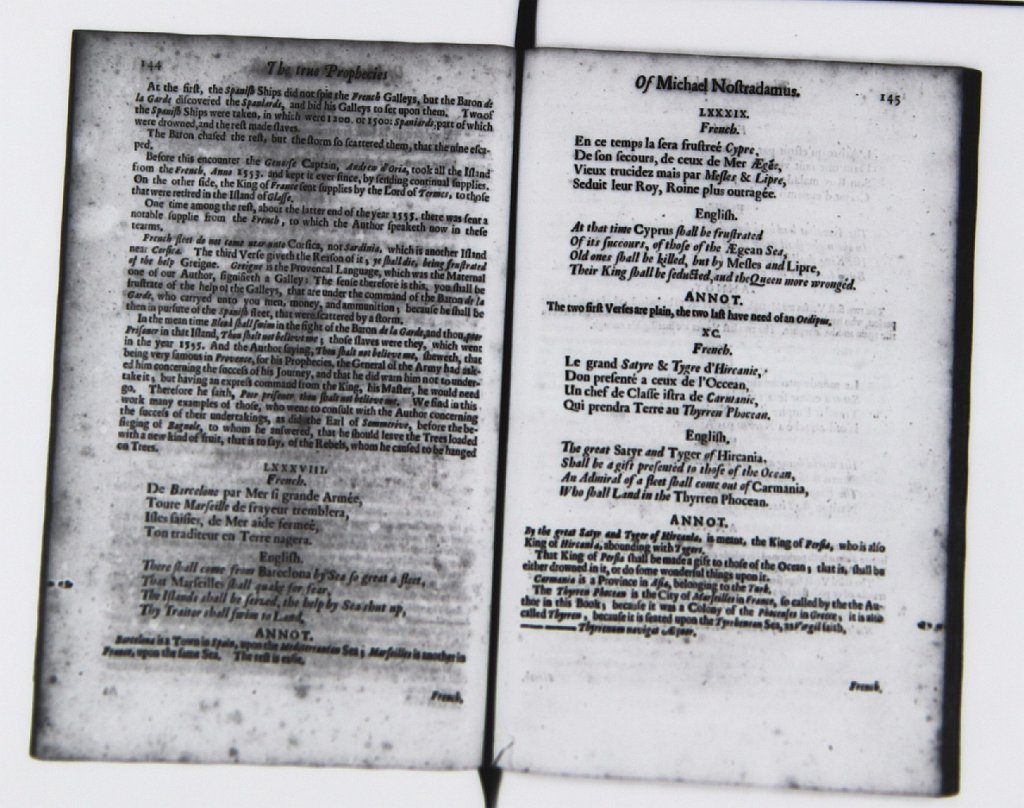 144
The true Prophecies
At the first, the Spanish Ships did not spie the French Galleys, but the Baron de
la Garde discovered the Spaniards, and bid his Galleys to set upon them. Two of
the Spanish Ships were taken, in which were 1200. or 1500: Spaniards, part of which
were drowned, and the rest made slaves.
The Baron chased the rest, but the storm so scattered them, that the nine esca-
ped.
Before this encounter the Genoese Captain, Andrew d'Oria, took all the Island
from the French, Anno 1553. and kept it ever since, by sending continual supplies.
On the other side, the King of France sent supplies by the Lord of Termes, to those
that were retired in the Island of
One time among the rest, about the latter end of the year 1555. there was sent a
notable supplie from the French, to which the Author speaketh now in these
tearms.
French fleet do not come near unto Corsica, not Sardinia, which is another Island
near Corsica. The third Verse giveth the Reason of it, ye shall die, being frustrated
of the help Greigne. Greigne is the Provencal Language, which was the Maternal
one of our Author, signifieth a Galley: The sense therefore is this, you shall be
frustrate of the help of the Galleys, that are under the command of the Baron de la
Garde, who carryed unto you men, money, and ammunition; because he shall be
then in pursute of the Spanish fleet, that were scattered by a storm.
In the mean time Blood shall swim in the sight of the Baron de la Garde, and thou, poor
Prisoner in that Island, Thou shalt not believe me; those slaves were they, which went
in the year 1555. And the Author saying, Thou shalt not believe me, sheweth, that
being very famous in Provence, for his Prophecies, the General of the Army had ask-
ed him concerning the success of his Journey, and that he did warn him not to under-
take it; but having an express command from the King, his Master, he would need
go. Therefore he saith, Poor prisoner, thou shalt not believe me. We find in this
work many examples of those, who went to consult with the Author concerning
the success of their undertakings, as did the Earl of Sommerive, before the be-
sieging of Bagnole, to whom he answered, that he should leave the Trees loaded
with a new kind of fruit, that is to say, of the Rebels, whom he caused to be hanged
on Trees.
LXXXVIII.
French.
De Barcelone par Mer si grande Armée,
Toute Marseille de frayeur tremblera,
Isles saisies, de Mer aide fermeé,
Ton traditeur en Terre nagera.
English.
There shall come from Barcelona by Sea so great a fleet,
That Marseilles shall quake for fear,
The Islands shall be seized, the help by Sea shut up,
Thy Traitor shall swim to Land,
ANNOT.
Barcelone is a Town in Spain, upon the Mediterranean Sea; Marseilles is another in
France, upon the same Sea. The rest is easie.
French.
Of Michael Nostradamus.
145
LXXXIX.
French.
En ce temps la sera frustreé Cypre,
De son secours, de ceux de Mer Ægée,
Vieux trucidez mais par Mesles & Lipre,
Seduit leur Roy, Roine plus outragée.
English.
At that time Cyprus shall be frustrated
Of its succours, of those of the Ægean Sea,
Old ones shall be killed, but by Mesles and Lipre,
Their King shall be seducted, and the Queen more wronged.
ANNOT.
The two first Verses are plain, the two last have need of an Oedipus.
XC.
French.
Le grand Satyre & Tygre d'Hircanie,
Don presenté a ceux de l'Occean,
Un chef de Classe istra de Carmanie,
Qui prendra Terre au Thyrren Phocean.
English,
The great Satyr and Tyger of Hircania,
Shall be a gift presented to those of the Ocean,
An Admiral of a fleet shall come out of Carmania,
Who shall Land in the Thyrren Phocean.
ANNOT.
By the great Satyr and Tyger of Hircania, is meant, the King of Persia, who is also
King of Hircania, abounding with Tygers.
That King of Persia shall be made a gift to those of the Ocean; that is, shall be
either drowned in it, or do some wonderful things upon it.
Carmania is a Province in Asia, belonging to the Turk.
The Thyrren Phocean is the City of Marseilles in France, so called by the the Au-
thor in this Book; because it was a Colony of the Phocenses in Greece; it is also
called Thyrren, because it is seated upon the Tyrrhenean Sea, as Virgil saith,
Thyrrenum navigat Æquor.
French.